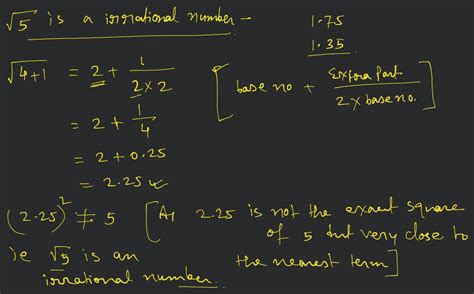 √5 is a irrational number –
1.75
1.35
√4+1 = 2 + 1/(2×2) [base no + Extra Part/(2× base no.)]
= 2 + 1/4
= 2 + 0.25
= 2.25
(2.25)² ≠ 5 [As 2.25 is not the exact square
of 5 but very close to
the nearest term]
ie √5 is an
irrational number.